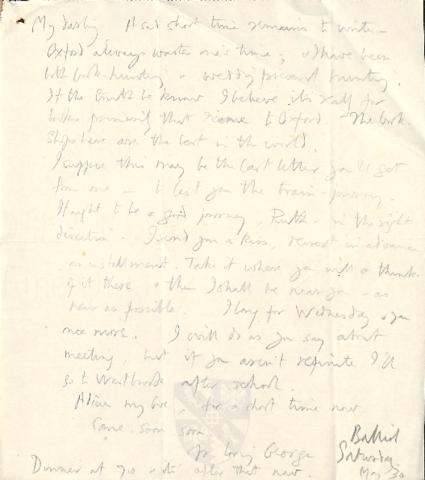 My darling A sad short time remains to write –
Oxford always wastes one's time; & I have been
both book-hunting & wedding present hunting.
If the truth be known I believe it's really for
books primarily that I come to Oxford – The book
shops here are the best in the world.
I suppose this may be the last letter you'll get
from me – to last you the train-journey.
It ought to be a good journey, Ruth – in the right
direction – I send you a kiss, dearest in advance
as instalment. Take it where you will & think
of it there & then I shall be near you – as
near as possible. I long for Wednesday & you
once more. I will do as you say about
meeting, but if you aren't definite I'll
go to Westbrook after school.
Adieu my love for a short time now
Come soon soon
Yr loving George
Balliol
Saturday
May 30
Dinner at 7.0 after that now.